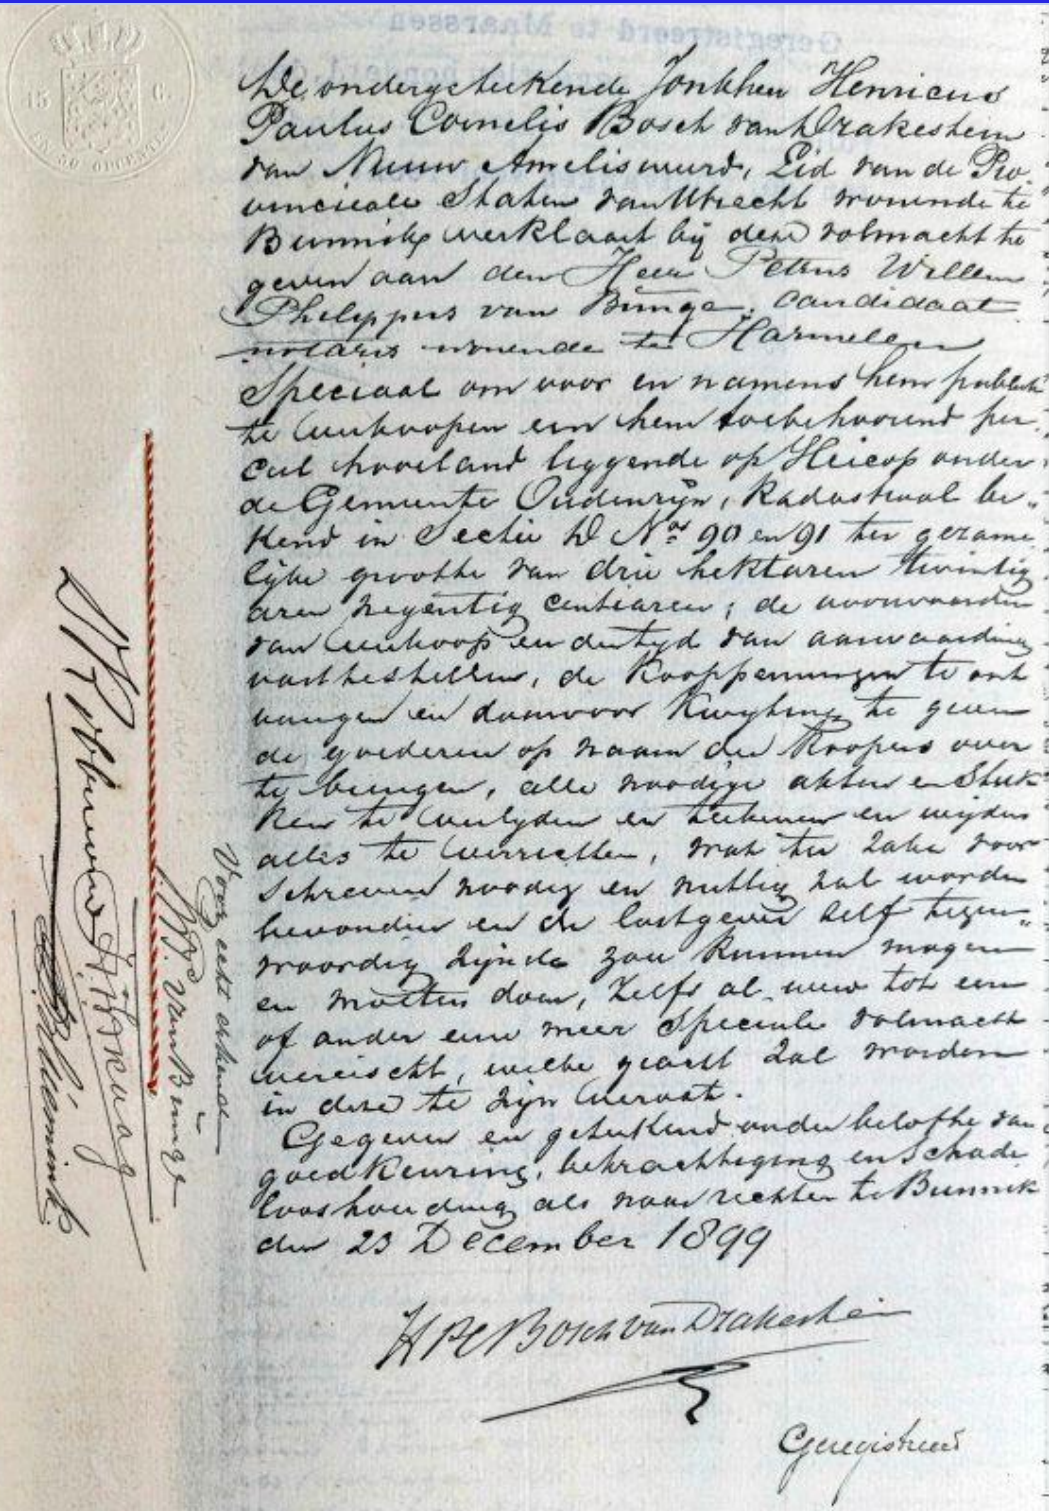 De ondergeteekende Jonkheer Henricus
Paulus Cornelis Bosch van Drakestein
van Nieuw Amelisweerd, Lid van de Pro
vincieale Staten van Utrecht wonende te
Bunnik verklaart bij deze volmacht te
geven aan den Heer Petrus Willem
Philippus van Bunge, candidaat
notaris wonende te Harmelen
Speciaal om voor en namens hem publiek
te verkoopen een hem toebehoorend per
ceel hooiland liggende op Heicop onder
de Gemeente Oudenrijn, kadastraal be„
kend in Sectie D Nos 90 en 91 ter gezame
lijke grootte van drie hektaren twintig
aren negentig centiaren; de voorwaarden
van verkoop en den tijd van aanvaarding
vast te stellen, de kooppenningen te ont
vangen en daarvoor kwijting te geven
de goederen op naam der koopers over
te brengen, alle noodige akten en Stuk
ken te verlijden en teekenen en wijders
alles te verrichten, wat ter zake voor
schreven noodig en nuttig zal worden
bevonden en de lastgever zelf tegen„
woordig zijnde zou kunnen mogen
en moeten doen, zelfs al werd tot een
of ander eene meer Speciale volmacht
vereischt, welke geacht zal worden
in deze te zijn vervat.
Gegeven en geteekend onder belofte van
goedkeuring, bekrachtiging en Schade
looshouding als naar rechten te Bunnik
den 23 December 1899
HPC Bosch van Drakestein
Geregistreerd
Voor echt erkend
van Bunge
Geregistreerd te Maarssen